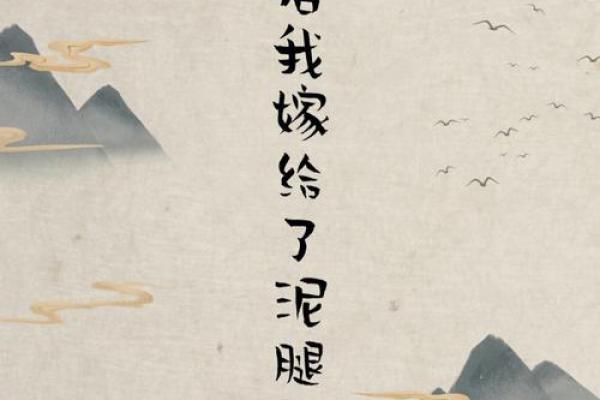 我嫁给了泥腿